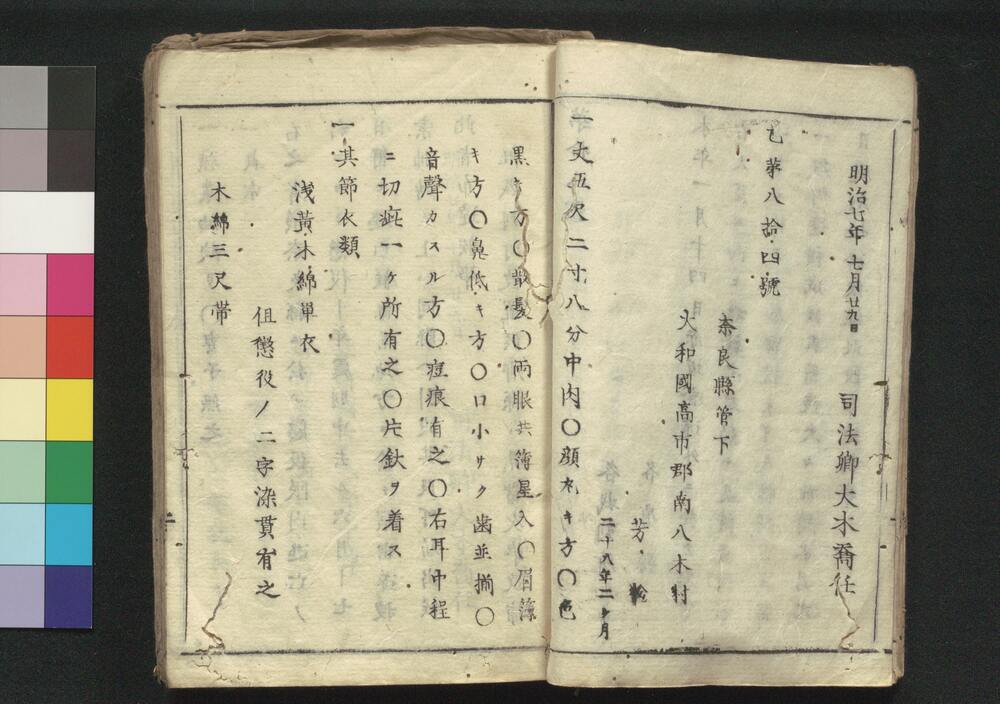 明治七年七月廿九日　司法卿大木喬任
乙第八拾四號
奈良縣管下
大和國高市郡南八木村
芳松
二十八年二ケ月
一丈五尺二寸八分中肉〇顔丸キ方〇色
黒キ方〇散髪〇両眼共簿星入〇眉簿
キ方〇鼻低キ方〇口小サク歯並揃〇
音聲カスル方〇痘痕有之〇右耳中程
ニ切疵一ケ所有之〇片鈦ヲ着ス
一其節衣類
浅黄木綿單衣
但懲役ノ二字染貫有之
木綿三尺帯